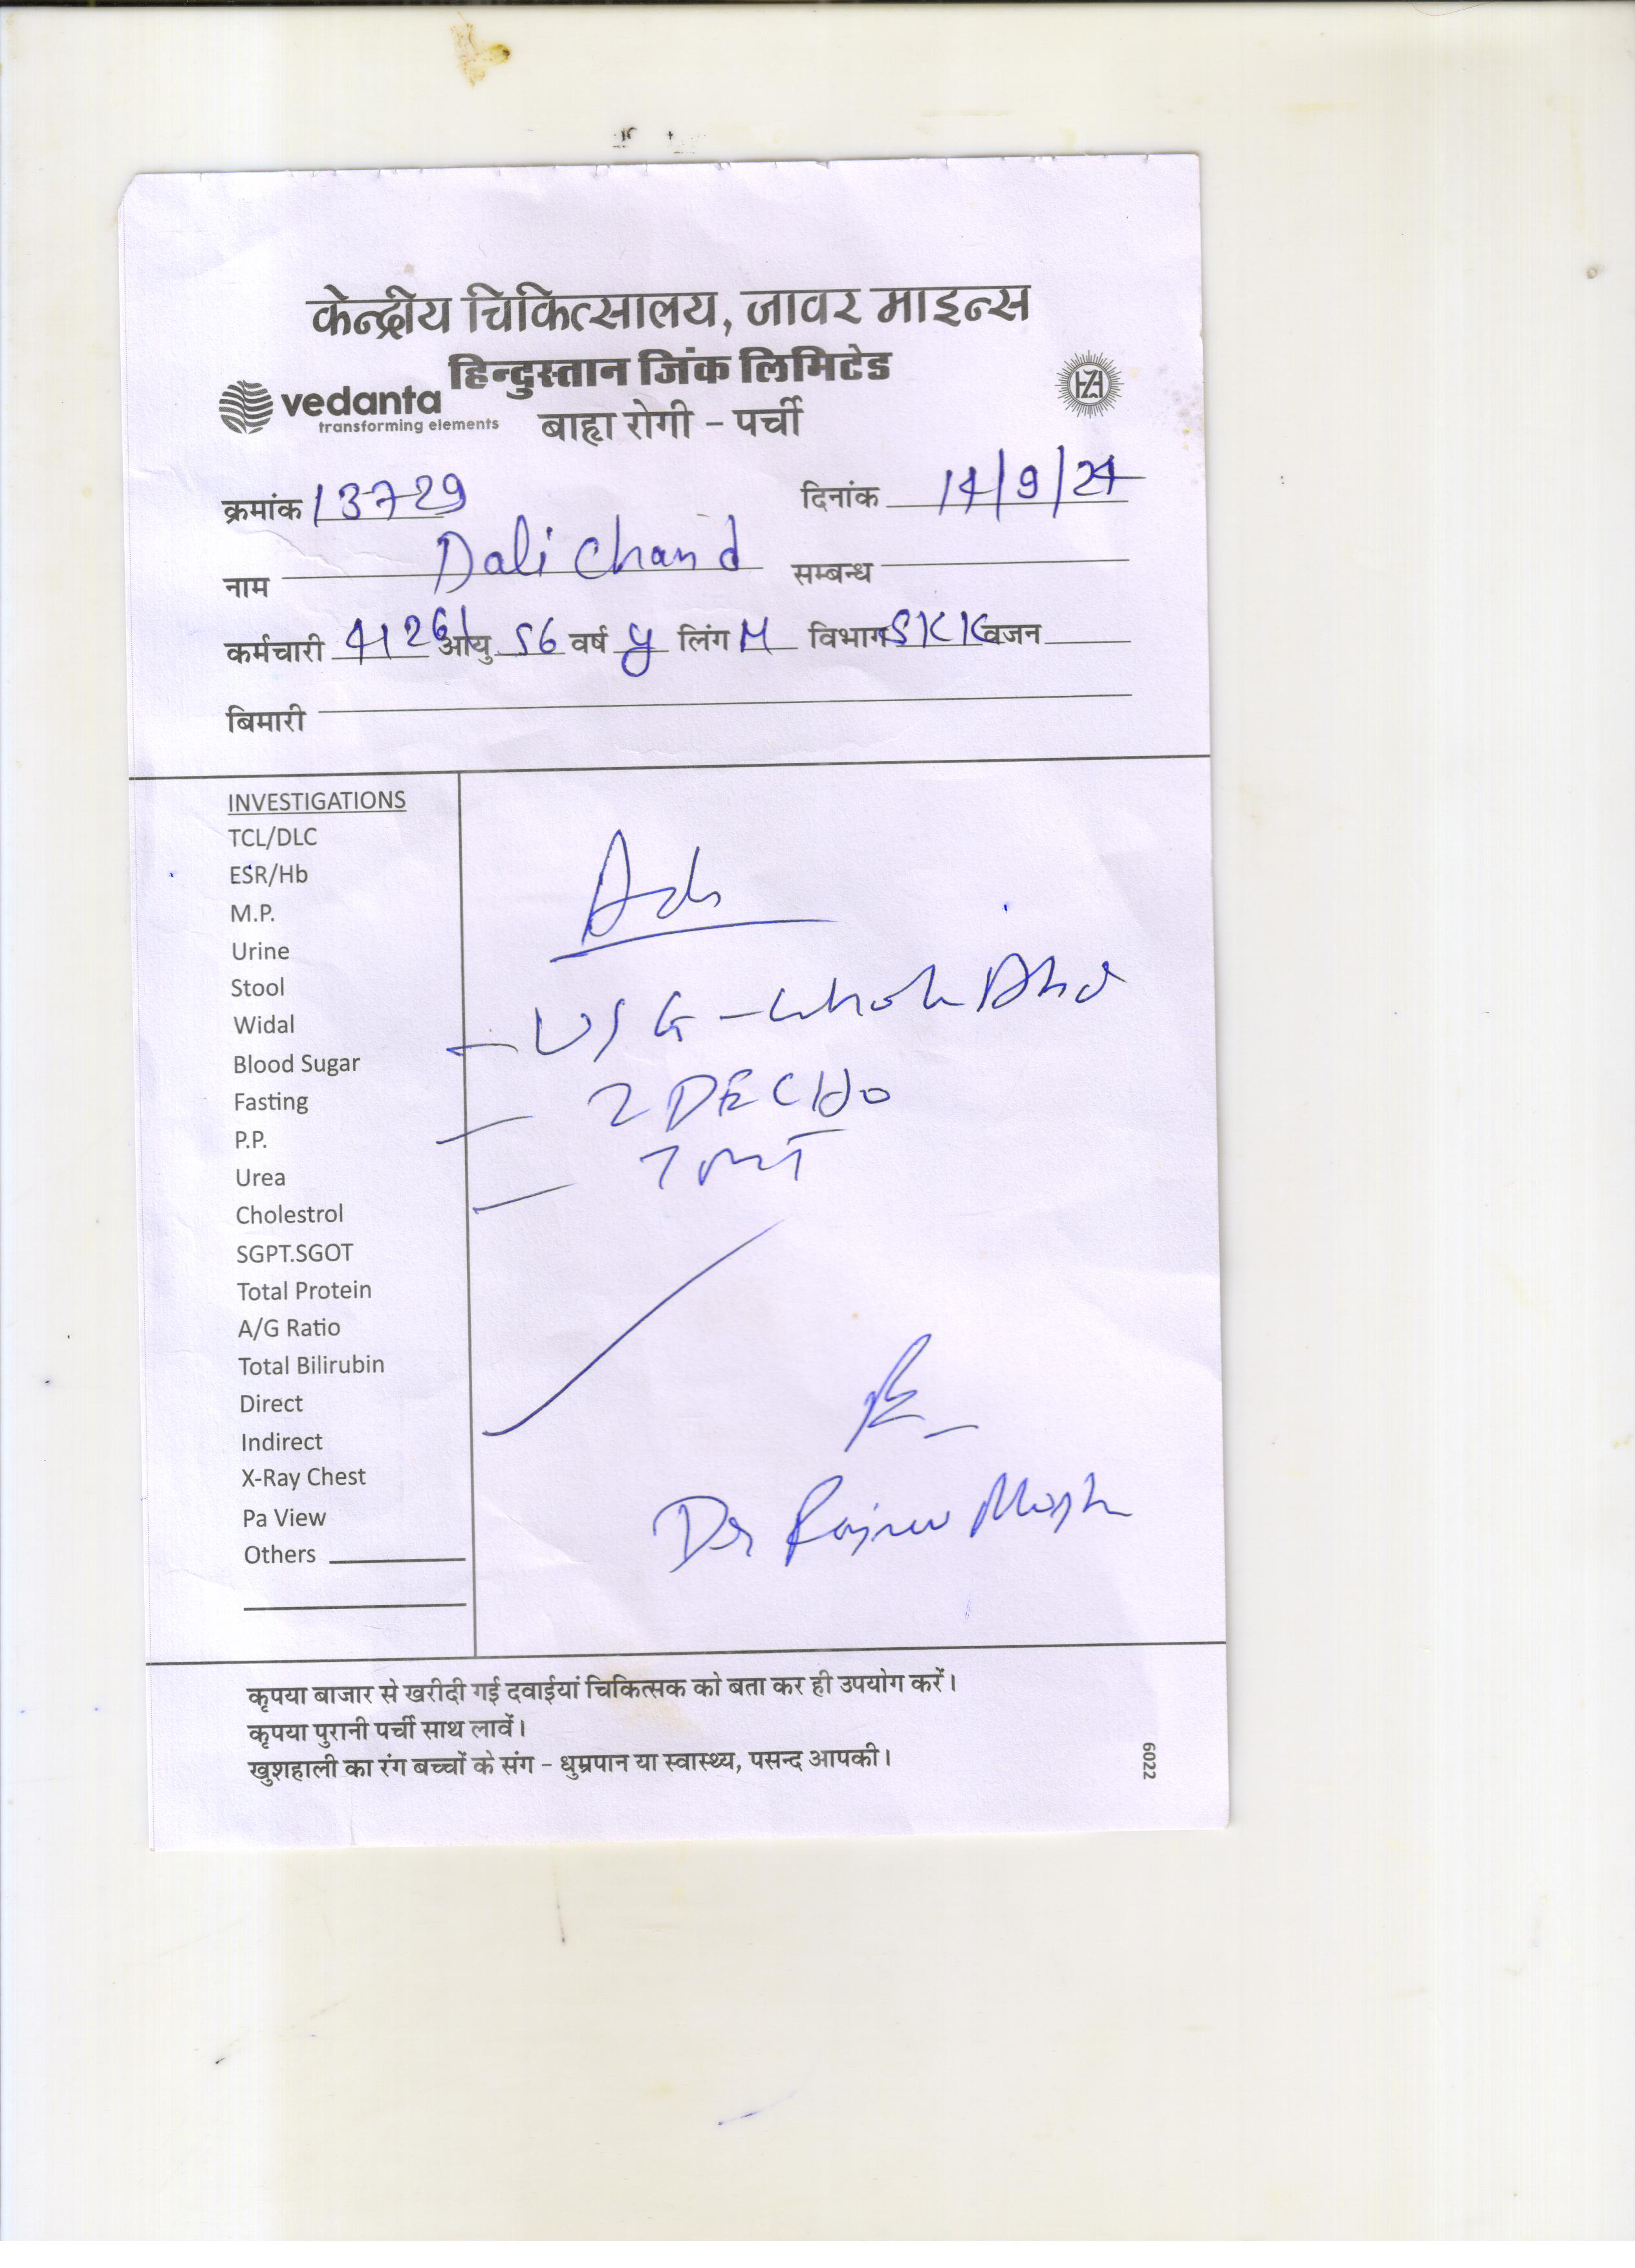 केन्द्रीय चिकित्सालय, जावर माइन्स
हिन्दुस्तान जिंक लिमिटेड
vedanta
transforming elements
बाह्य रोगी - पर्ची
क्रमांक 13729 दिनांक 14/9/24
नाम Dali Chand सम्बन्ध
कर्मचारी 41261 आयु 56 वर्ष y लिंग M विभाग SKK वजन
बिमारी
INVESTIGATIONS
TCL/DLC
ESR/Hb
M.P.
Urine
Stool
Widal
Blood Sugar
Fasting
P.P.
Urea
Cholestrol
SGPT.SGOT
Total Protein
A/G Ratio
Total Bilirubin
Direct
Indirect
X-Ray Chest
Pa View
Others
Adv
- USG - Whole Abd
- 2D ECHO
- TMT
Dr Rajeev
कृपया बाजार से खरीदी गई दवाईयां चिकित्सक को बता कर ही उपयोग करें।
कृपया पुरानी पर्ची साथ लावें।
खुशहाली का रंग बच्चों के संग - धुम्रपान या स्वास्थ्य, पसन्द आपकी।
6022